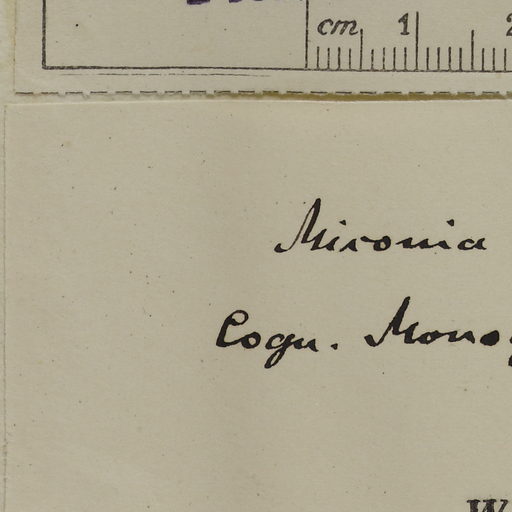 cm 1 2
Miconia
Cogn. Monog
W